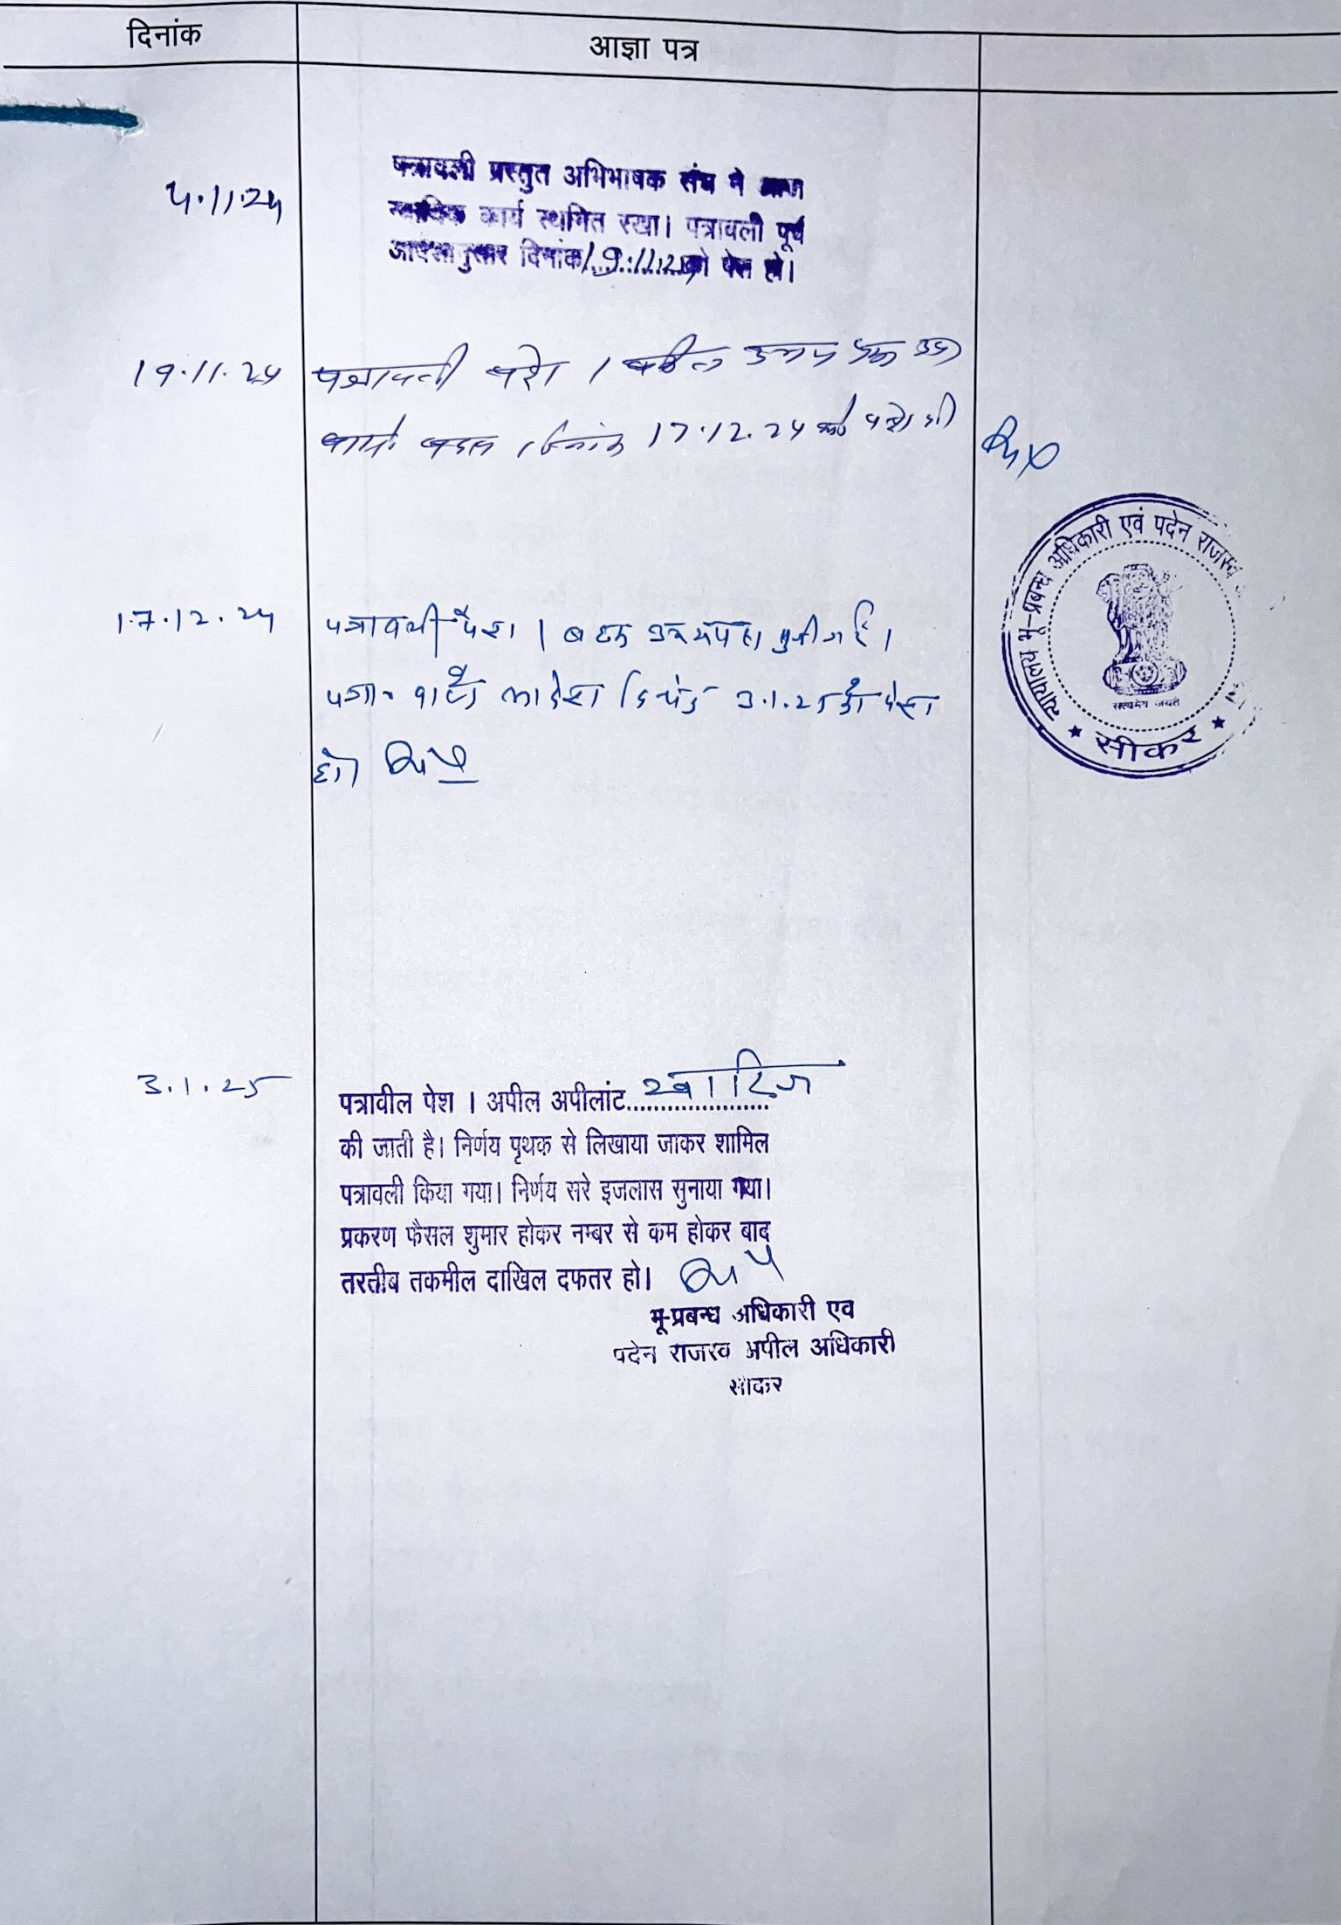 दिनांक
आज्ञा पत्र
पत्रावली प्रस्तुत अभिभाषक संघ ने आज
4.11.24
न्यायिक कार्य स्थगित रखा। पत्रावली पूर्व
आदेशानुसार दिनांक 19.11.24 को पेश हो।
19.11.24 पत्रावली पेश । वकील उभय पक्ष उप०
वास्ते बहस दिनांक 17.12.24 को पेश हो
17.12.24 पत्रावली पेश । बहस उभयपक्ष सुनी गई।
पत्रा० वास्ते आदेश दिनांक 3.1.25 को पेश
हो।
न्यायालय भू-प्रबन्ध अधिकारी एवं पदेन राजस्व
सत्यमेव जयते
★ सीकर ★
3.1.25
पत्रावील पेश । अपील अपीलांट खारिज
की जाती है। निर्णय पृथक से लिखाया जाकर शामिल
पत्रावली किया गया। निर्णय सरे इजलास सुनाया गया।
प्रकरण फैसल शुमार होकर नम्बर से कम होकर बाद
तरतीब तकमील दाखिल दफतर हो।
भू-प्रबन्ध अधिकारी एव
पदेन राजस्व अपील अधिकारी
सीकर